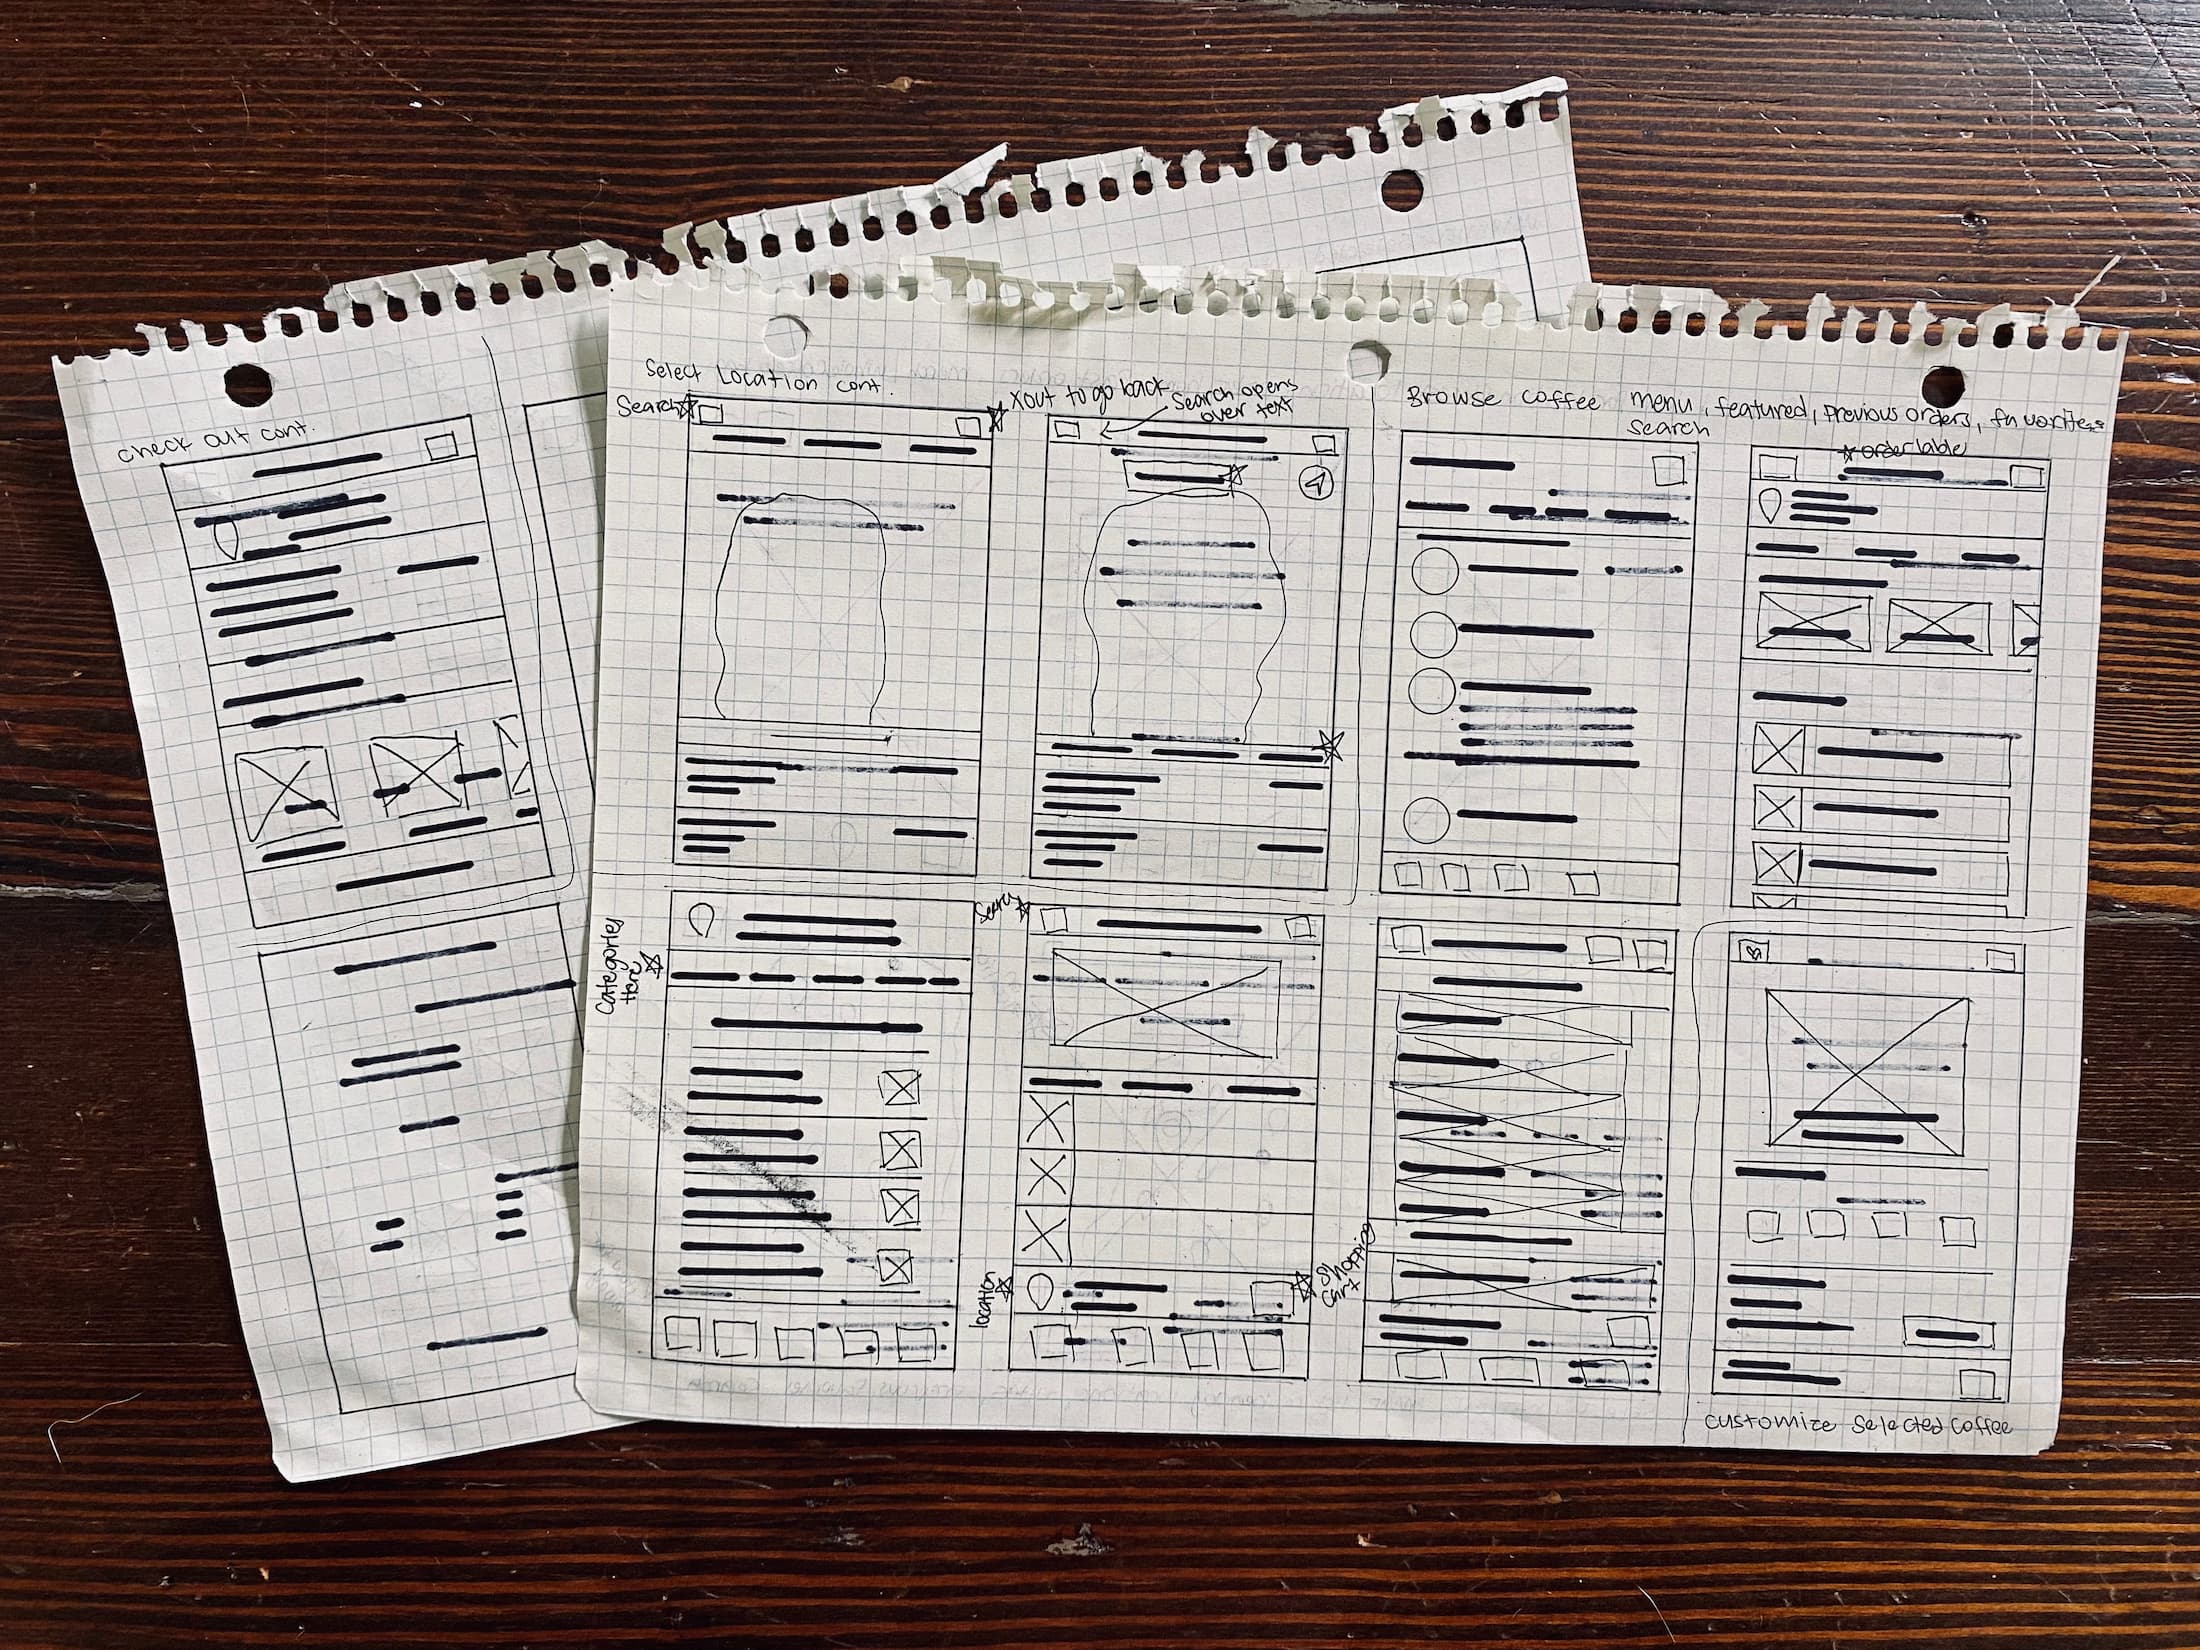 check out cont.
Select Location cont.
Search
X out to go back
Search opens
over text
Browse coffee menu, featured, previous orders, favorites
search
order lable
Categories
Here
Search
location
Shopping
Cart
customize selected coffee